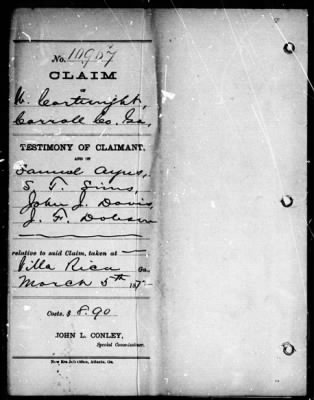 No. 10957
CLAIM
OF
W. Cartwright,
Carroll Co. Ga.
TESTIMONY OF CLAIMANT,
AND OF
Samuel Ayers,
S. T. Sims,
John J. Davis,
J. F. Dobson
relative to said Claim, taken at
Villa Rica Ga.
March 5th 187
Costs. $ 8.90
JOHN L. CONLEY,
Special Commissioner.
New Era Job Office, Atlanta, Ga.